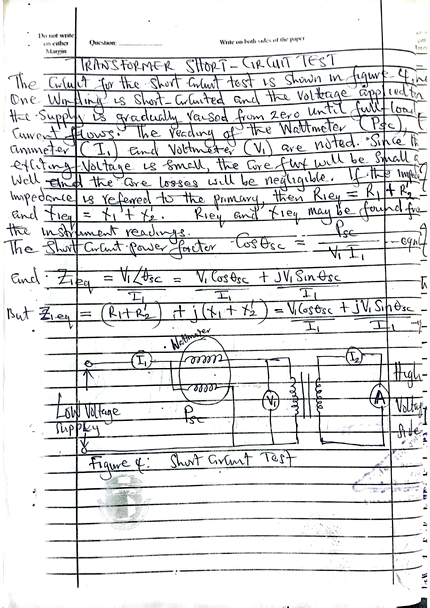 Do not write
on either
Margin
Question:
Write on both sides of the paper
TRANSFORMER SHORT-CIRCUIT TEST
The Circuit for the short circuit test is shown in figure 4,
One Winding is Short-Circuited and the Voltage applied
the Supply is gradually raised from zero until full-load
Current flows. The reading of the Wattmeter (Psc),
ammeter (I₁) and Voltmeter (V₁) are noted. Since
exciting Voltage is small, the Core flux will be small
well and the Core losses will be negligible. If the
impedance is referred to the primary, then R₁eq = R₁ + R₂'
and X₁eq = X₁ + X₂'. R₁eq and X₁eq may be found
the instrument readings.
The Short Circuit power factor Cosθsc = Psc / V₁ I₁
and Z₁eq = V₁∠θsc / I₁ = V₁ Cosθsc / I₁ + jV₁ Sinθsc / I₁
But Z₁eq = (R₁ + R₂') + j(X₁ + X₂') = V₁Cosθsc / I₁ + jV₁ Sinθsc / I₁
Wattmeter
I₁
I₂
V₁
A
Psc
Low Voltage
Supply
High
Side
Figure 4: Short Circuit Test